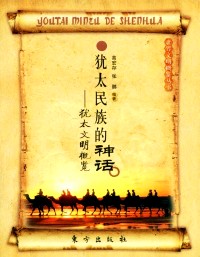 YOUTAI MINZU DE SHENHUA
犹太民族的神话
——犹太文明概览
编著
东方出版社